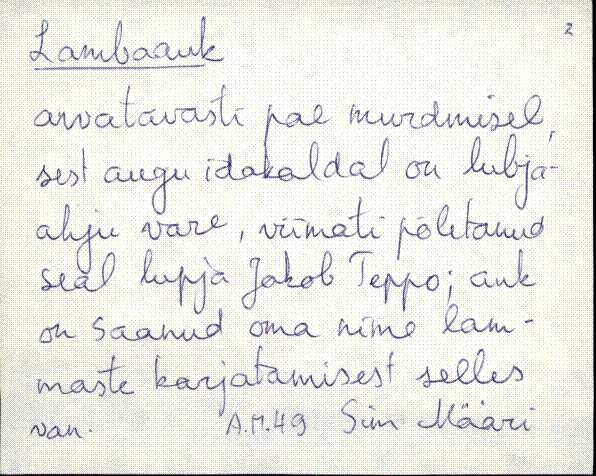 2
Lambaauk
arvatavasti pae murdmisel,
sest augu idakaldal on lubja-
ahju vare, viimati põletanud
seal lupja Jakob Teppo; auk
on saanud oma nime lam-
maste karjatamisest selles
van. A.M.49 Siin Määri